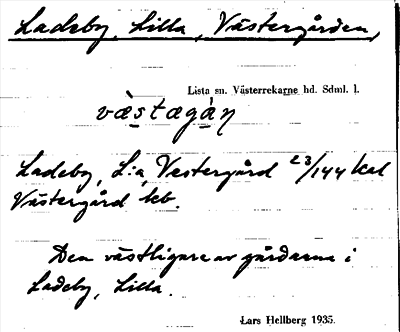 Ladeby, Lilla, Västergården,
Lista sn. Västerrekarne hd. Sdml. l.
væ̀stægá̱ṇ
Ladeby, L:a, Vestergård 23/144 kal
Västergård kb.
Den västligare av gårdarna i
Ladeby, Lilla.
Lars Hellberg 1935.